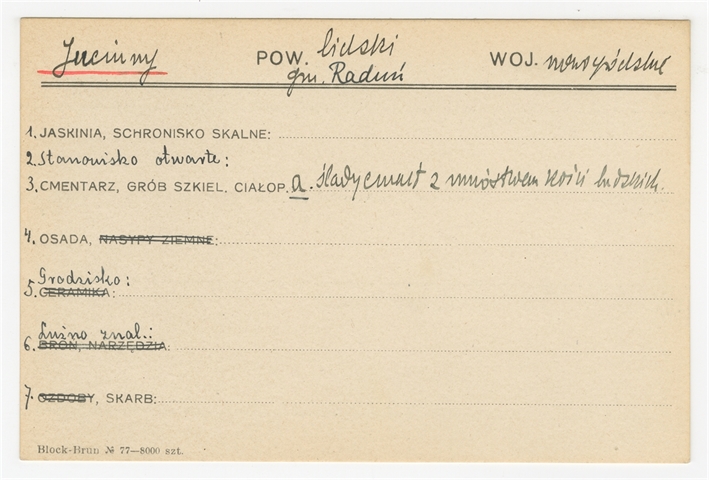 Juciuny POW. lidski WOJ. nowogródzkie
gm. Raduń
1. JASKINIA, SCHRONISKO SKALNE:
2. Stanowisko otwarte:
3. CMENTARZ, GRÓB SZKIEL. CIAŁOP. a. ślady cment z mnóstwem kości ludzkich.
4. OSADA, NASYPY ZIEMNE:
Grodzisko:
5. CERAMIKA:
Luźno znal.:
6. BROŃ, NARZĘDZIA:
7. OZDOBY, SKARB:
Block-Brun № 77—8000 szt.